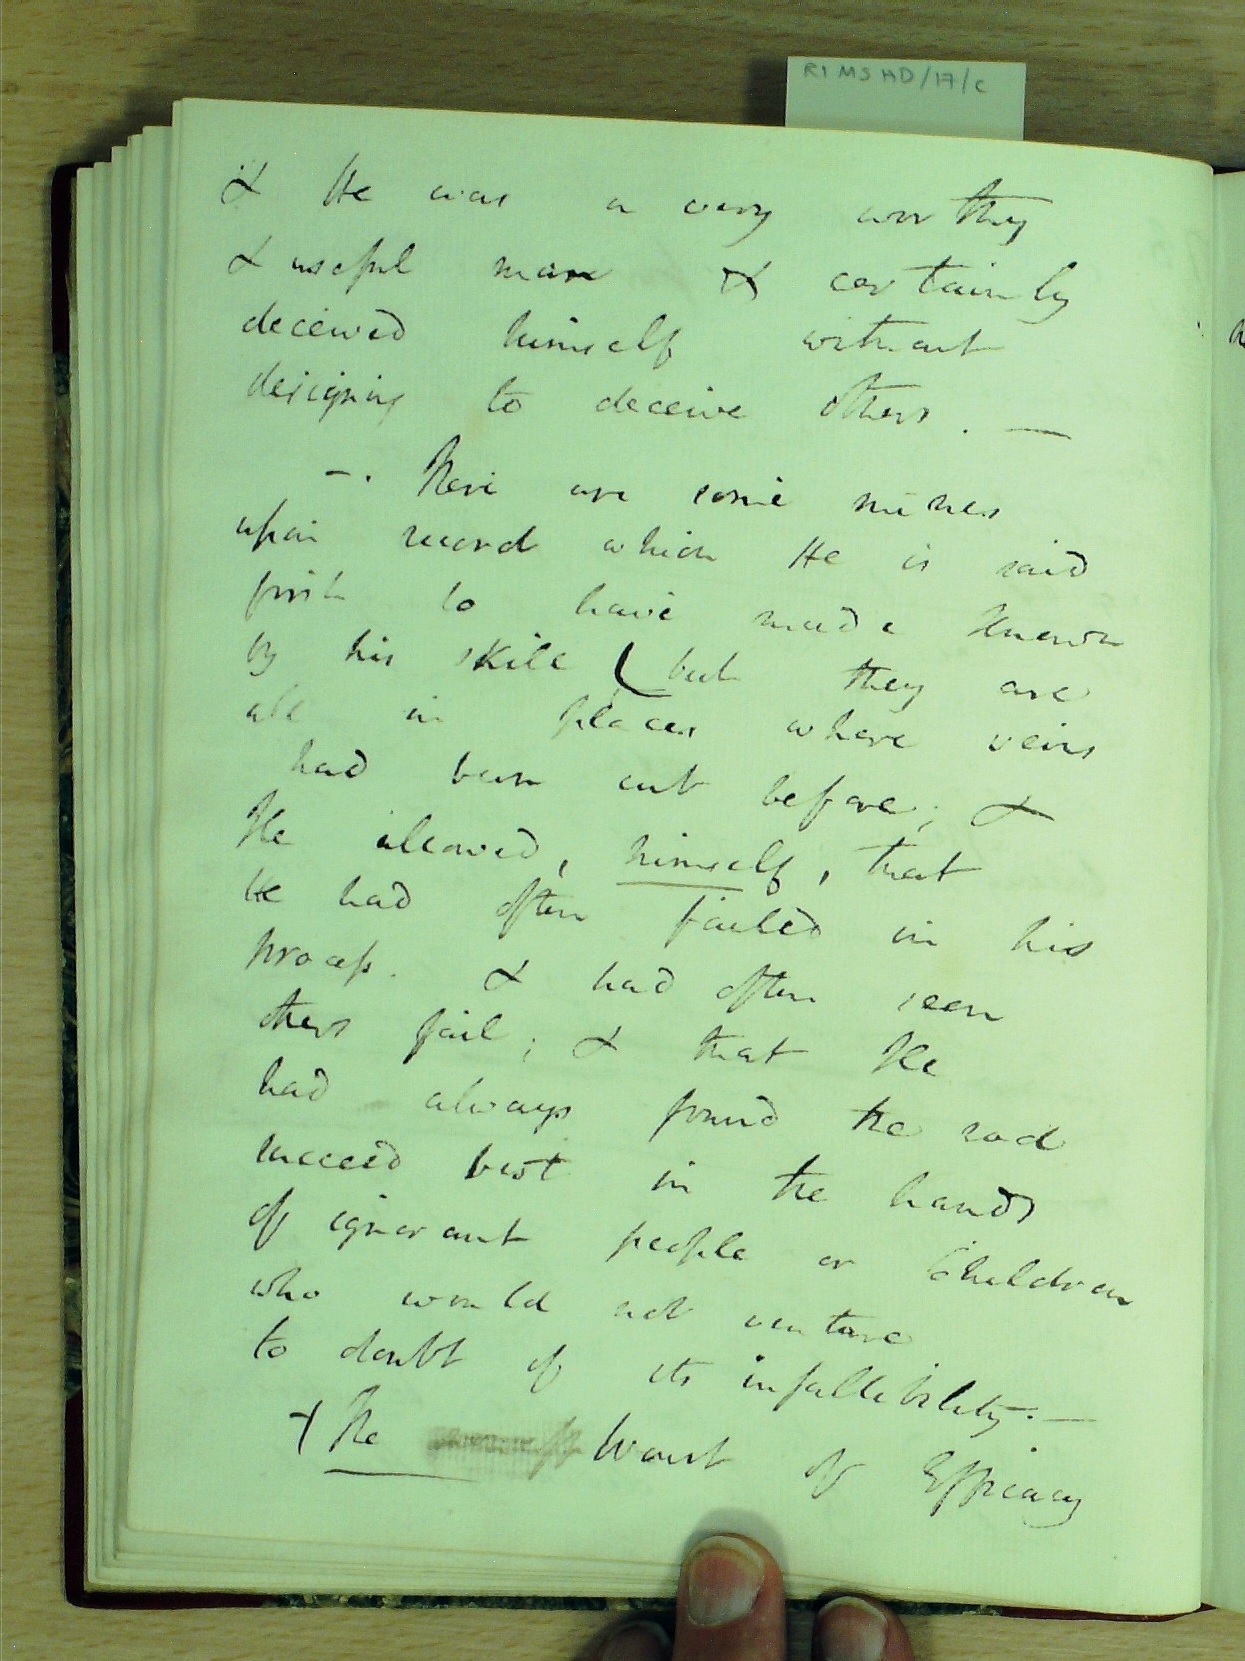 RI MS HD/17/C
& He was a very worthy
& useful man & certainly
deceived himself without
designing to deceive others. —
—. There are some mines
upon record which He is said
first to have made known
by his skill ( but they are
all in places where veins
had been cut before; &
He allowed, himself, that
He had often failed in his
process. & had often seen
others fail; & that He
had always found the rod
succeed best in the hands
of ignorant people or Children
who would not venture
to doubt of its infallibility. —
+ The Want of Efficacy